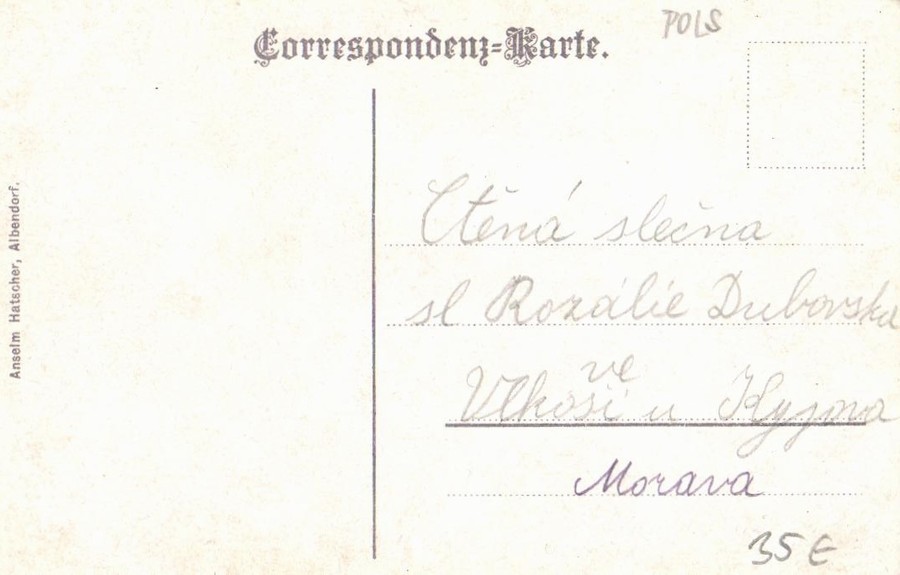 POLS
Correspondenz=Karte.
Anselm Hatscher, Albendorf.
Ctěná slečna
sl Rozálie Dubovska
ve
Vlkoši u Kyjova
Morava
35 €